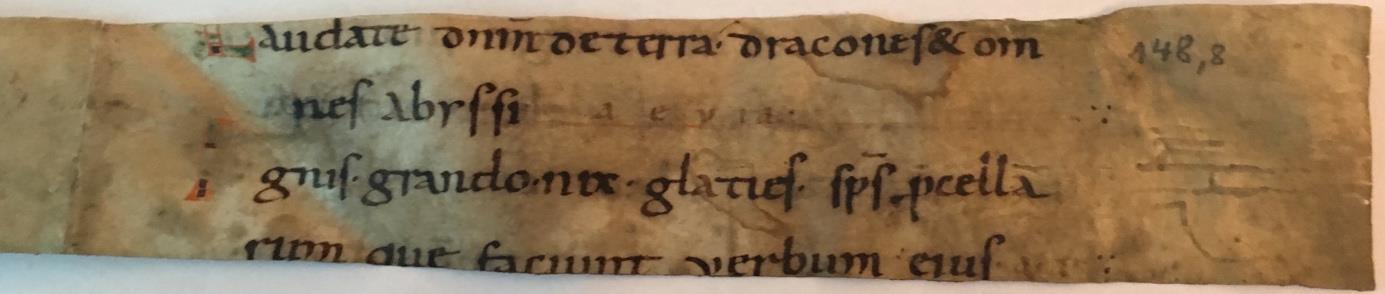 Laudate dnm̄ de terra· dracones& om 148,8
nes Abyssi
Ignis· grando·nix· glacies· sp̄s· ꝓcellā
rum que faciunt verbum eius